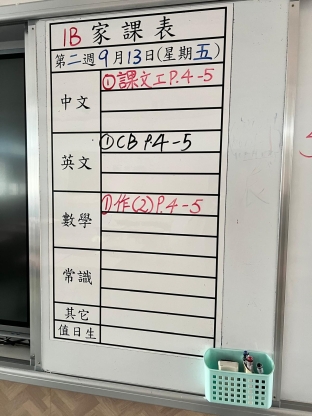 1B 家課表
第二週 9月13日(星期五)
中文 ①課文工P.4-5
英文 ①CB P.4-5
數學 ①作(2)P.4-5
常識
其它
值日生